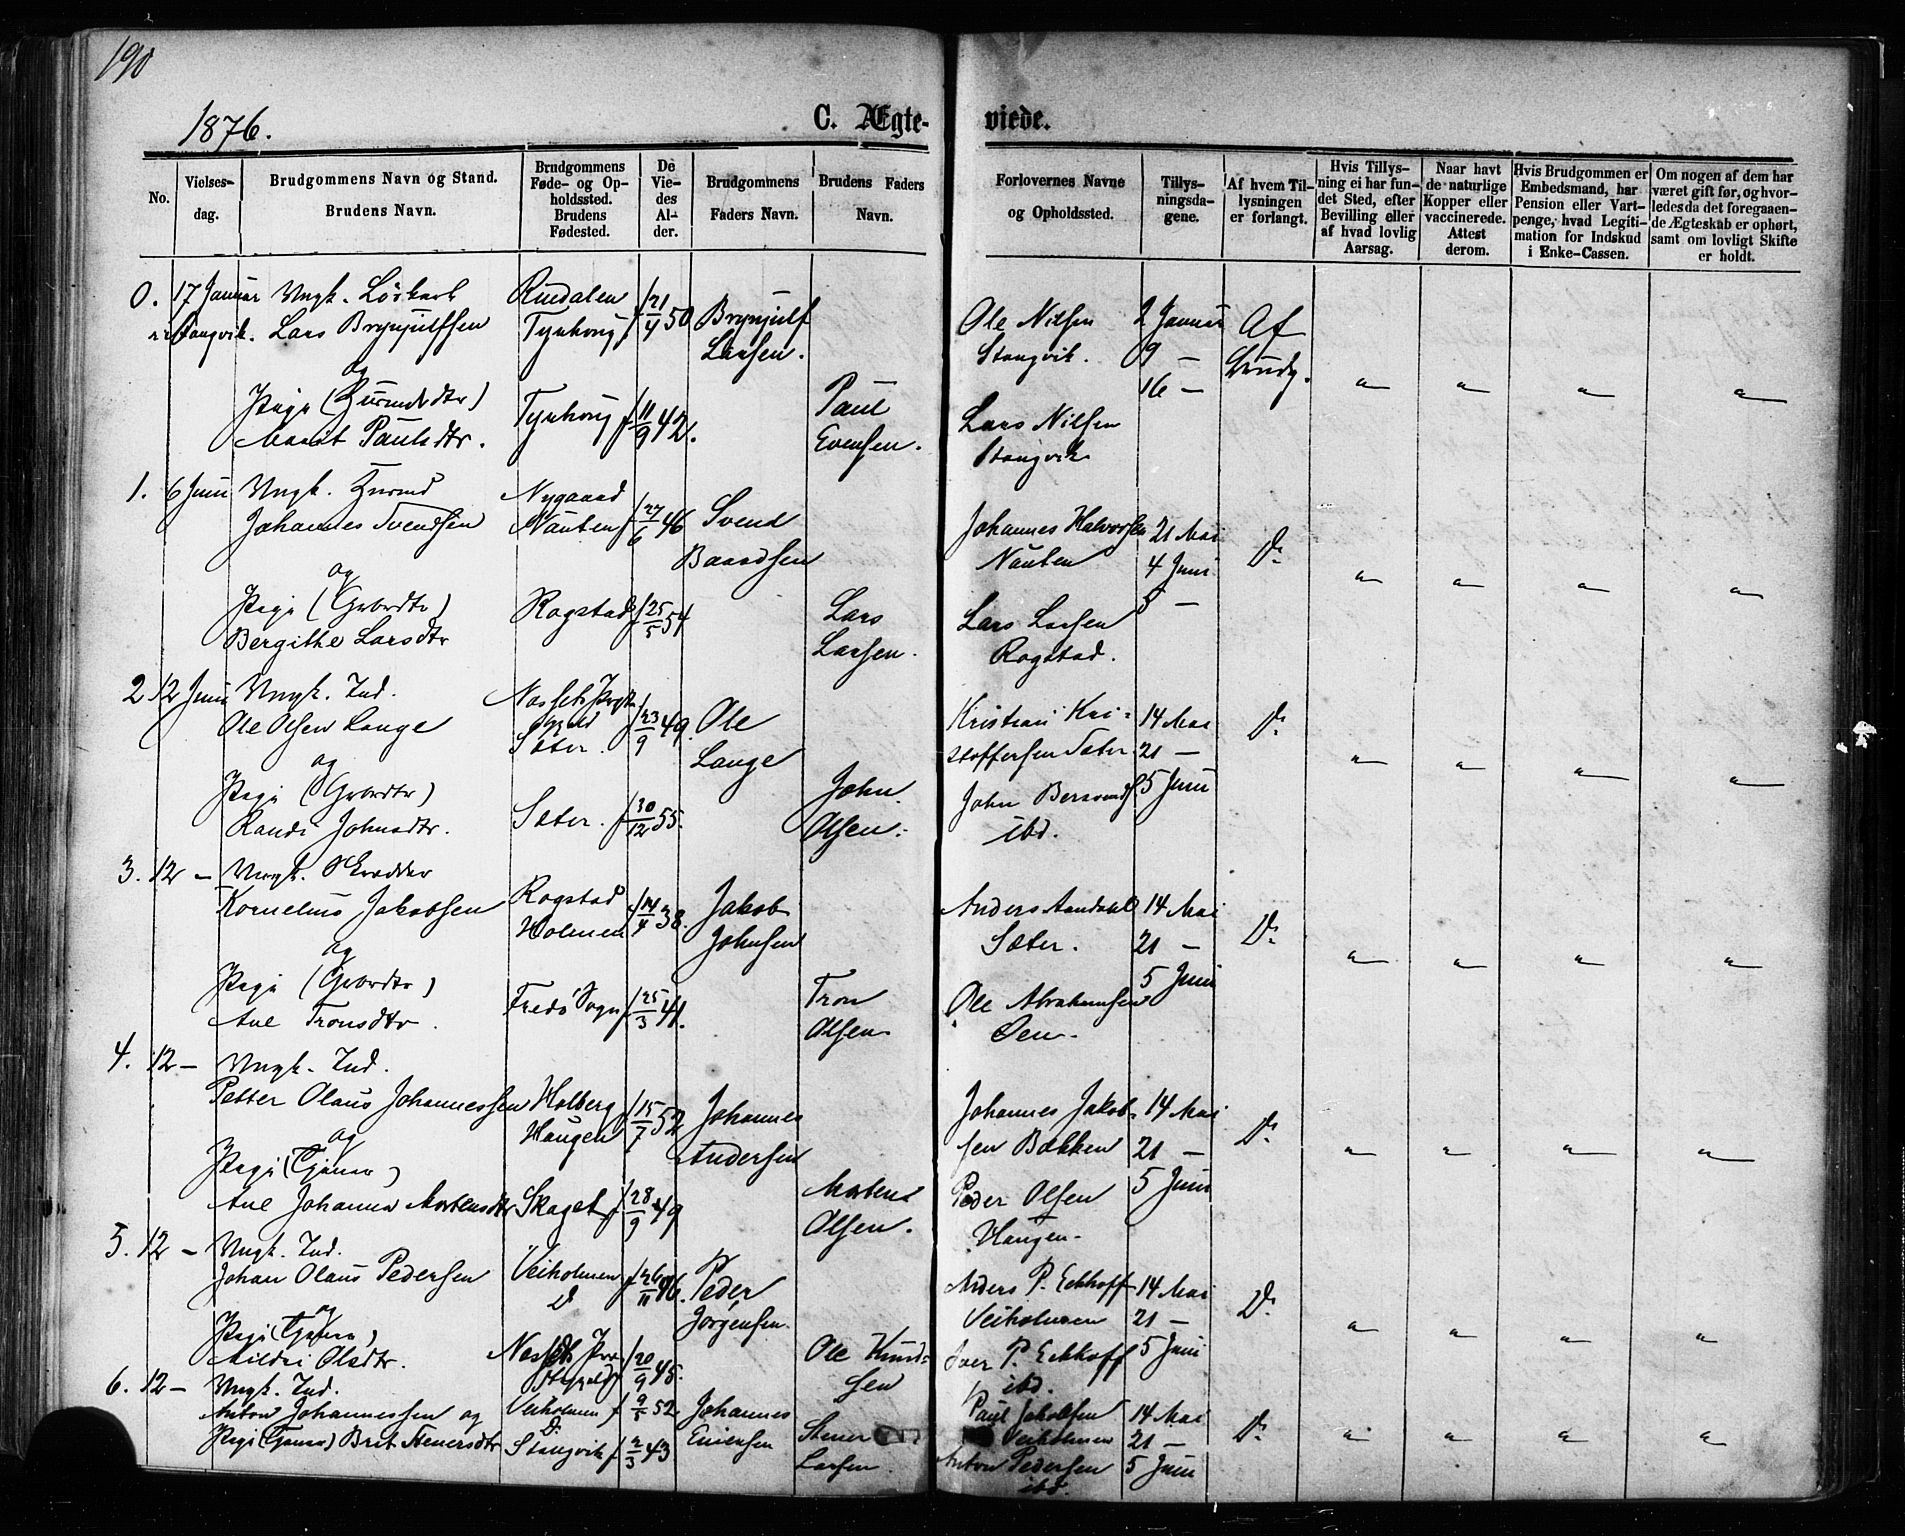 190
1876.
C. Ægte-
viede.
No.
Vielses-
dag.
Brudgommens Navn og Stand.
Brudens Navn.
Brudgommens
Føde- og Op-
holdssted.
Brudens
Fødested.
De
Vie-
des
Al-
der.
Brudgommens
Faders Navn.
Brudens Faders
Navn.
Forlovernes Navne
og Opholdssted.
Tillys-
ningsda-
gene.
Af hvem Til-
lysningen
er forlangt.
Hvis Tillys-
ning ei har fun-
det Sted, efter
Bevilling eller
af hvad lovlig
Aarsag.
Naar havt
de naturlige
Kopper eller
vaccinerede.
Attest
derom.
Hvis Brudgommen er
Embedsmand, har
Pension eller Vart-
penge, hvad Legiti-
mation for Indskud
i Enke-Cassen.
Om nogen af dem har
været gift før, og hvor-
ledes da det foregaaen-
de Ægteskab er ophørt,
samt om lovligt Skifte
er holdt.
0. 17 Januar Ungk. Løskarl
Stangvik. Lars Brynjulfsen
og
Pige
Marit Paulsdtr.
Tynhoug f. 21/4 50
Tynhoug f 11/9 42.
Brynjulf
Larsen.
Paul
Evensen.
Ole Nilsen
Stangvik.
Lars Nilsen
Stangvik
2 Januar
9 —
16 —
Af
1. 6 Juni Ungk.
Johannes Svendsen
og
Pige (Gbrdtr)
Bergithe Larsdtr
Nygaard
Nauten f 27/6 46
Rogstad f 25/5 54
Svend
Baardsen
Lars
Larsen.
Johannes Halvorsen
Nauten
Lars Larsen
Rogstad.
21 Mai
4 Juni
5 —
Do
2 12 Juni Ungk. Ind.
Ole Olsen Lange
og
Pige (Gbrdtr)
Randi Johnsdtr.
Nossets Prgld
Sæter. f 23/9 49.
Sæter. f 30/12 55.
Ole
Lange
John
Olsen.
Kristian Kri-
stoffersen Sæter.
John
ibd.
14 Mai
21 —
5 Juni
Do
3. 12 — Ungk. Skrædder
Kornelius Jakobsen
og
Pige (Gbrdtr)
Ane Tronsdtr.
Rogstad
Holmen f 14/4 38.
Fredø Sogn f 25/3 41.
Jakob
Johnsen
Tron
Olsen
Anders Aandahl
Sæter.
Ole Abrahamsen
Øen.
14 Mai
21 —
5 Juni
Do
4. 12 — Ungk. Ind.
Petter Olaus Johannessen
og
Pige (Tjener)
Ane Johanna Mortensdtr
Holberg
Haugen f 15/7 52
Skaget f 28/9 49
Johannes
Andersen
Morten
Olsen.
Johannes Jakob-
sen Bakken
Peder Olsen
Haugen.
14 Mai
21 —
5 Juni
Do
5. 12 — Ungk. Ind.
Johan Olaus Pedersen
og
Pige (Tjener)
Mildri Olsdtr.
Veiholmen
Do f 26/11 46.
Nossets Præ-
stegjeld f 20/9 45.
Peder
Jørgensen.
Ole Knud-
sen
Anders P. Eckhoff
Veiholmen
Iver P. Eckhoff
ibd.
14 Mai
21 —
5 Juni
Do
6. 12 — Ungk. Ind.
Anton Johannessen og
Pige (Tjener) Brit Stenersdtr
Veiholmen f 9/5 52
Do
Stangvik f 2/3 43
Johannes
Stener
Larsen.
Paul Jakobsen
Veiholmen
Anton Pedersen
ibd.
14 Mai
21 —
5 Juni
Do